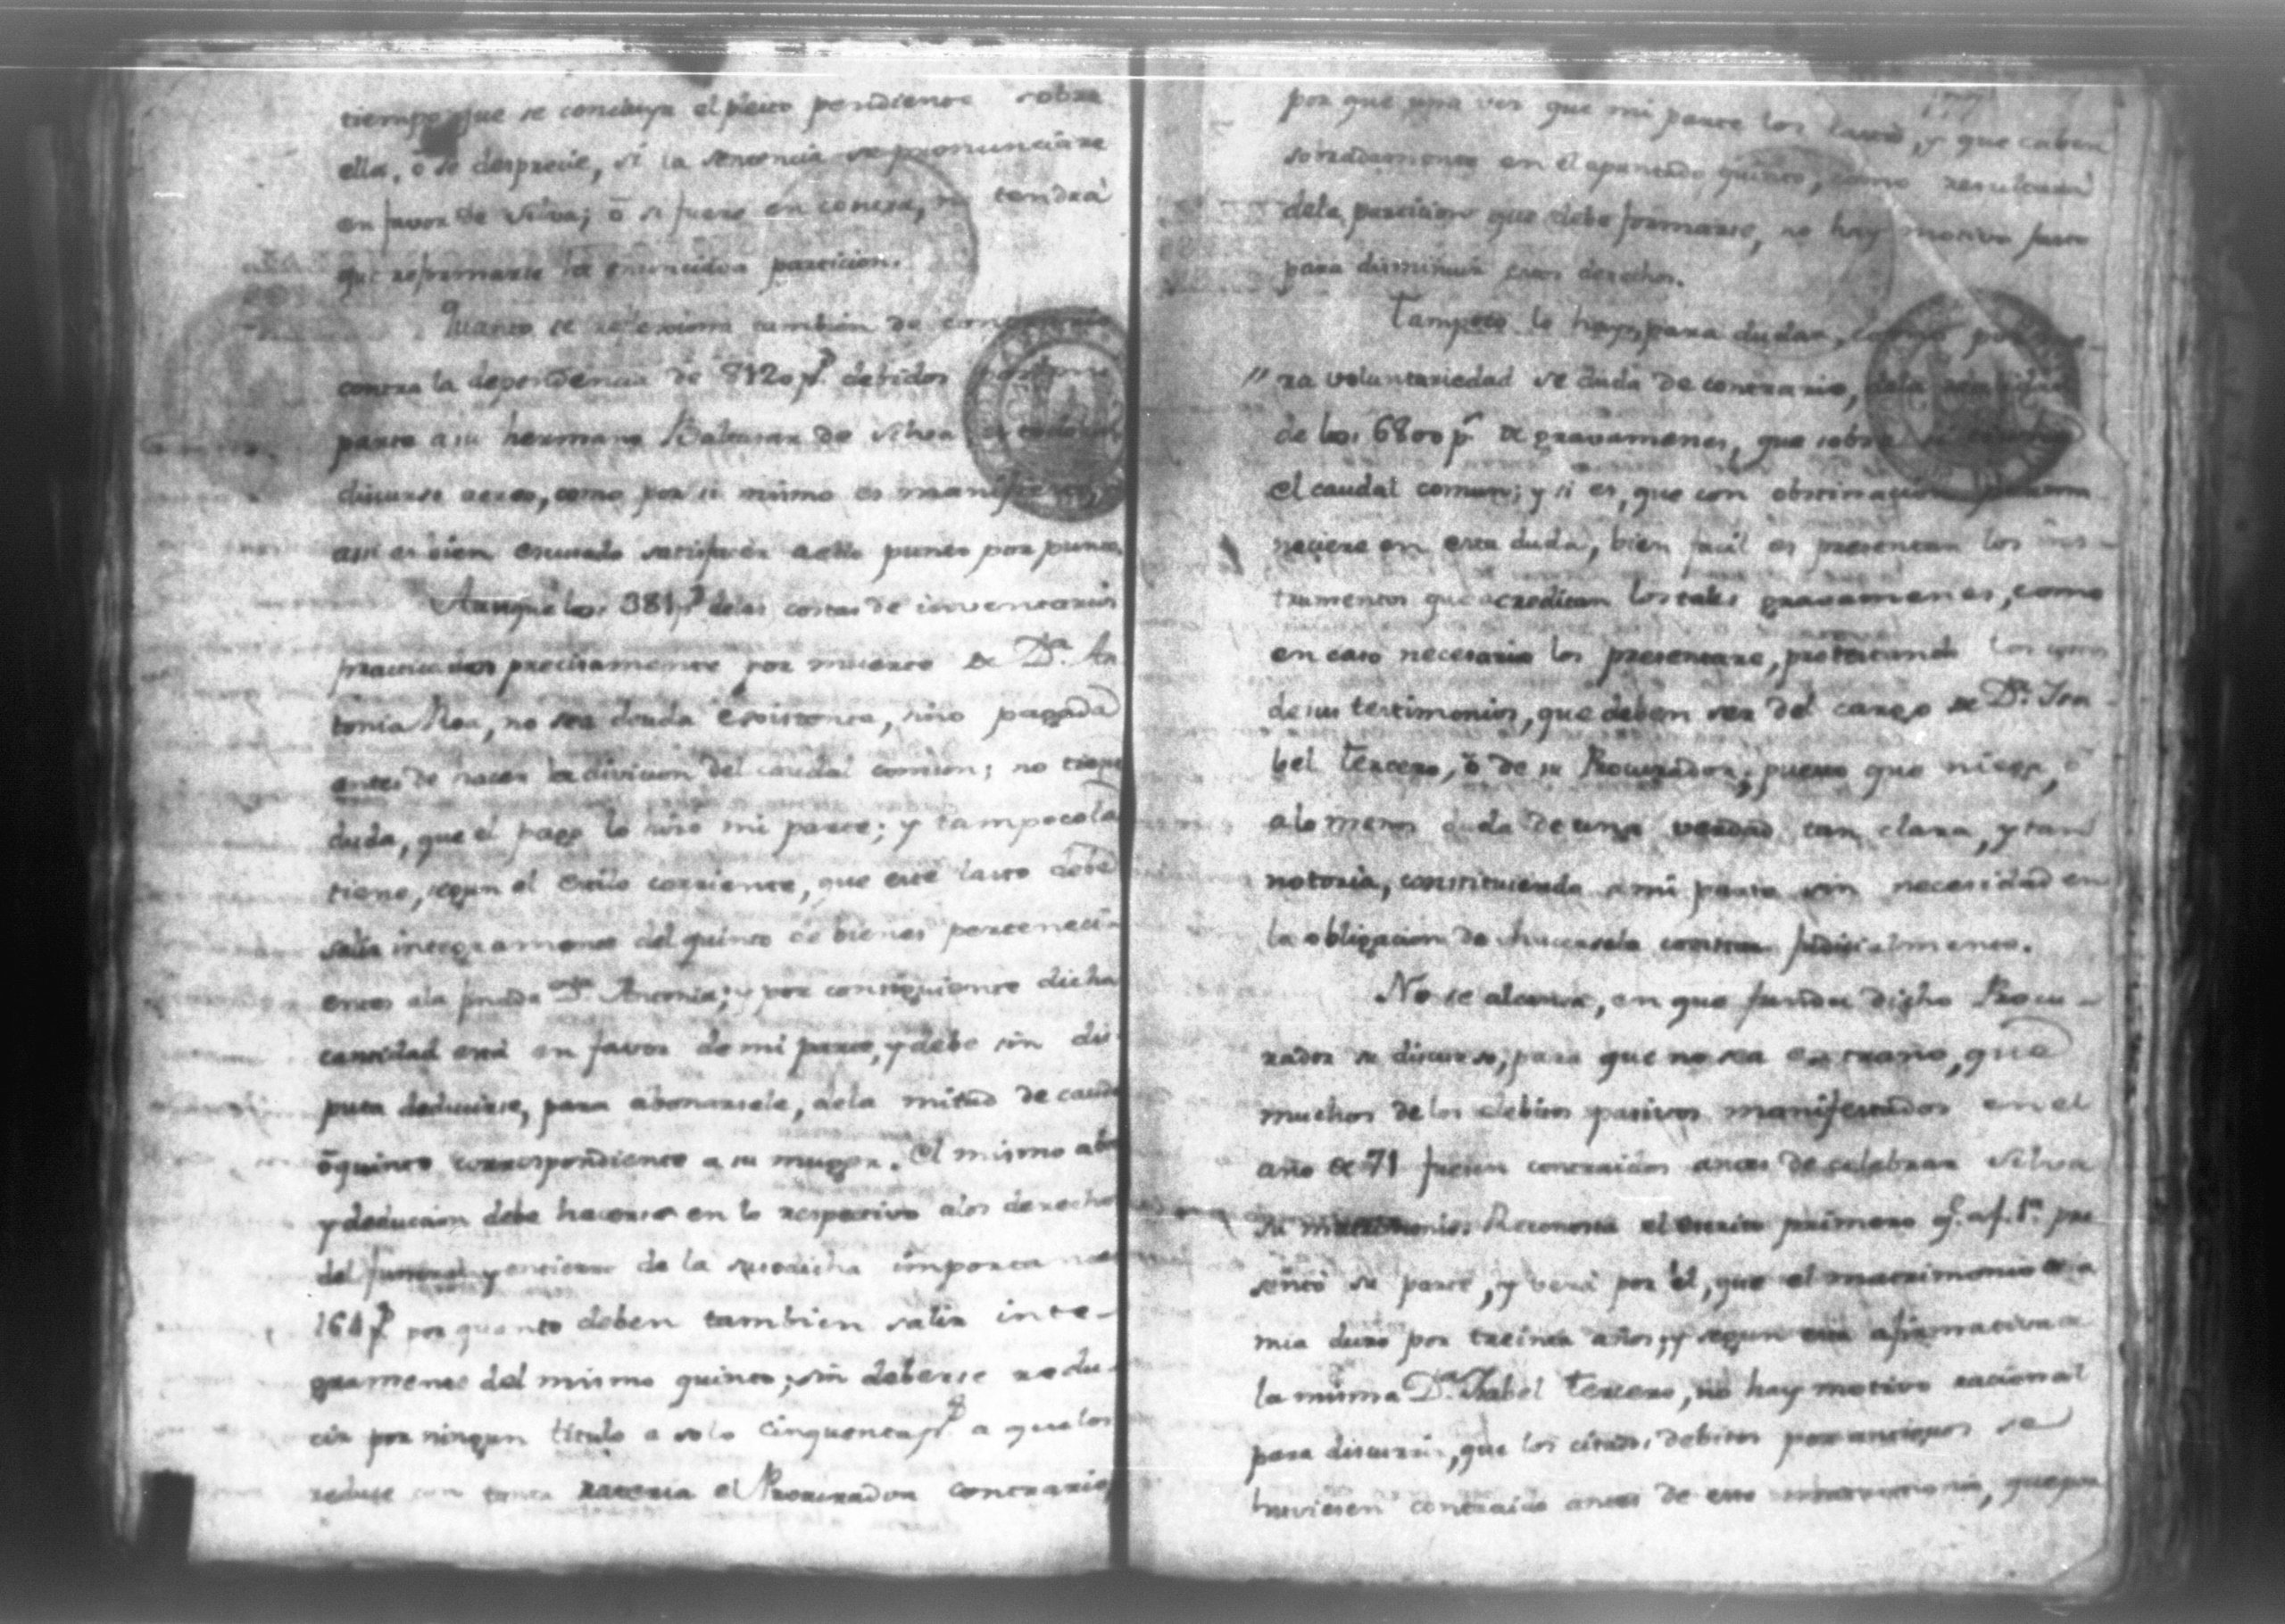 tiempo que se concluya el pleito pendiente sobre
ella, ó se desprecie, si la sentencia se pronunciare
en favor de Silva; ó si fuere en contra, no tendrá
que reformarse la enunciada particion.
Quanto se reflexiona tambien de
contra la dependencia de 8120 p.s debidos
parte a su hermano Baltasar de Silva es
discurso aereo, como por si mismo es manifiesto,
asi es bien escusado satisfacer a este punto por punto.
Aunque los 381 p.s delas costas de inventarios
practicados precisamente por muerte de D.a An
tonia Roa, no sea deuda existente, sino pagada
antes de hacer la division del caudal comun; no tiene
duda, que el pago lo hizo mi parte; y tampoco la
tiene, segun el estilo corriente, que este lasto debe
salir integramente del quinto de bienes perteneci-
entes ala finada D.a Antonia; y por consiguiente dicha
cantidad está en favor de mi parte, y debe sin dis-
puta deducirse, para abonarsele, dela mitad de caudal
ó quinto correspondiente a su muger. El mismo abo
y deduccion debe hacerse en lo respectivo alos derechos
del funeral y entierro de la susodicha importantes
164 p.s por quanto deben tambien salir inte-
gramente del mismo quinto; sin deberse redu-
cir por ningun titulo a solo cinquenta p.s a que los
reduce con tanta rateria el Procurador contrario,
por que una vez que mi parte los lastó, y que caben
sobradamente en el apuntado quinto, como resultará
dela particion que debe formarse, no hay motivo justo
para disminuir estos derechos.
Tampoco lo hay para dudar, como por me-
ra voluntariedad se duda de contrario, dela
de los 6800 p.s de gravamenes, que sobre si
el caudal comun; y si es, que con obstinacion
neciere en esta duda, bien facil es presentar los ins-
trumentos que acreditan los tales gravamenes, como
en caso necesario los presentare, protestando los
de sus testimonios, que deben ser del cargo de D.a Isa
bel Tercero, ó de su Procurador; puesto que niega, ó
alo menos duda de una verdad tan clara, y tan
notoria, constituyendo a mi parte sin necesidad en
la obligacion de hacersela constar judicialmente.
No se alcanza, en que funda dicho Procu-
rador su discurso, para que no sea extraño, que
muchos de los debitos pasivos manifestados en el
año de 71 fuesen contraidos antes de celebrar Silva
su matrimonio. Reconosca el escrito primero q.e a f. 1.a pre
sentó su parte, y verá por él, que el matrimonio de la
mia duró por treinta años; y segun esta afirmativa de
la misma D.a Isabel Tercero, no hay motivo racional
para discurrir, que los citados debitos por antiguos se
huviesen contraido antes de este matrimonio,